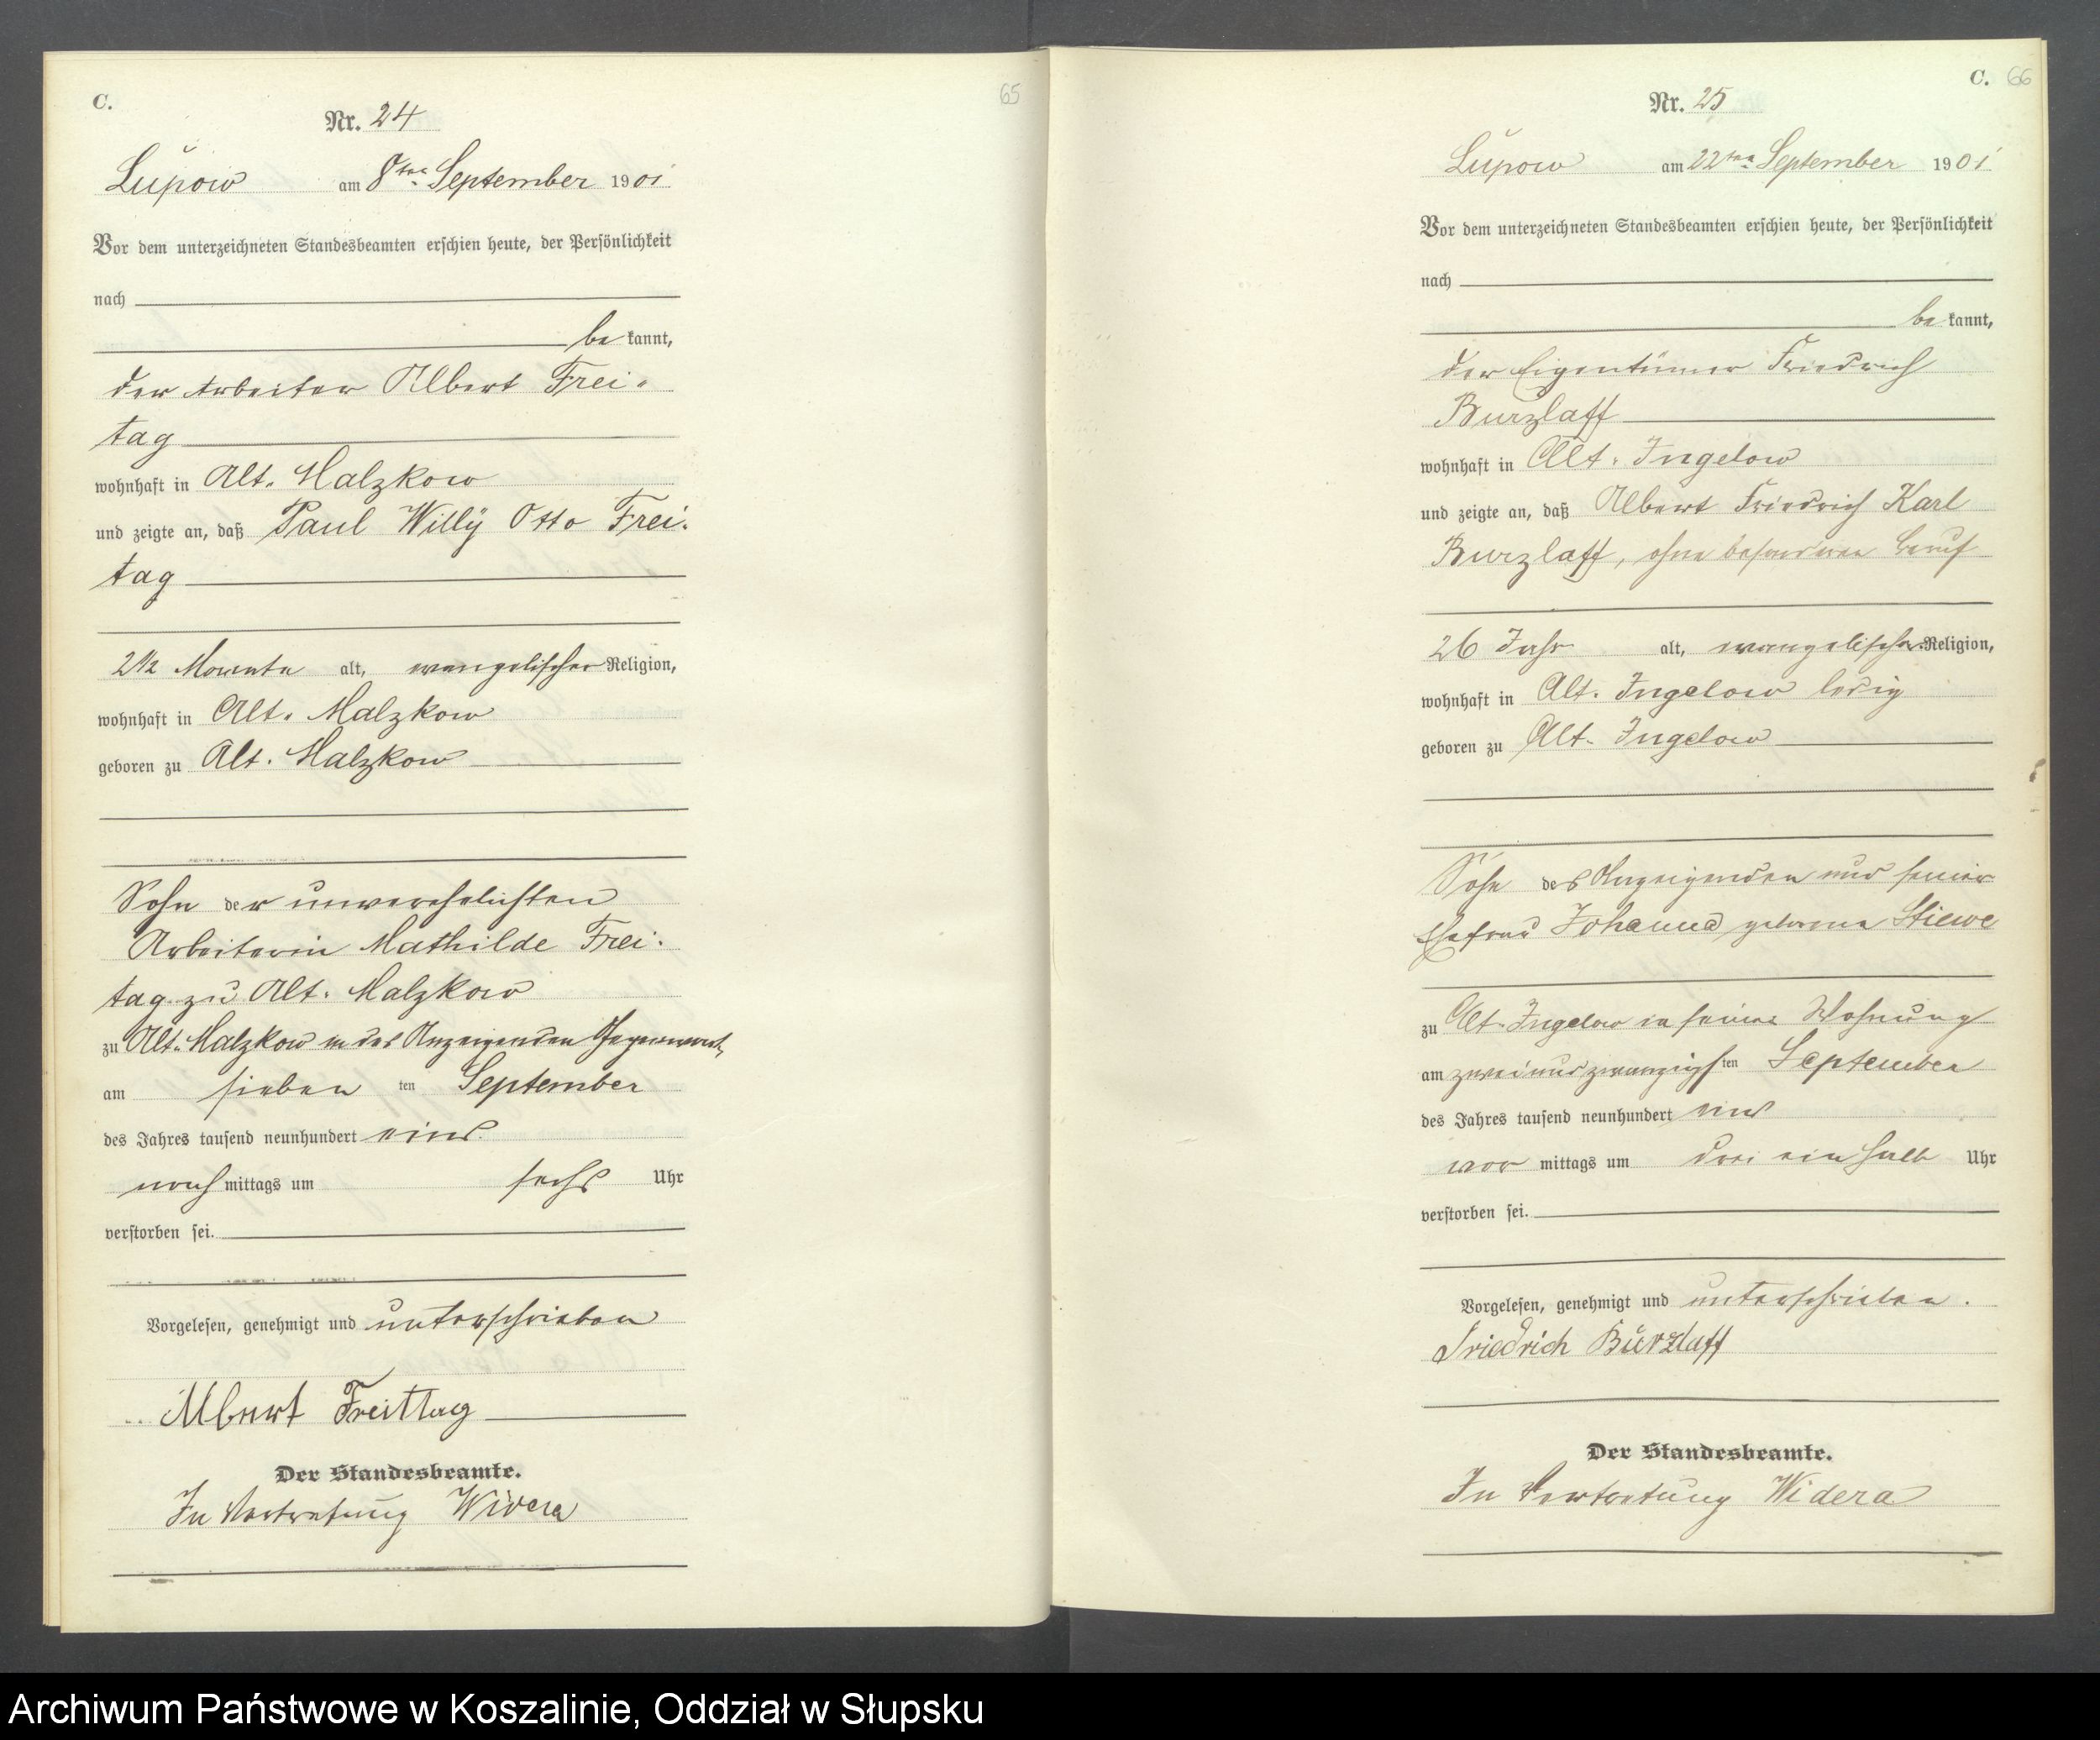 C.
65
Nr. 24
Lupow am 8ten September 1901
Vor dem unterzeichneten Standesbeamten erschien heute, der Persönlichkeit
nach
be kannt,
der Arbeiter Albert Frei-
tag
wohnhaft in Alt. Malzkow
und zeigte an, daß Paul Willy Otto Frei-
tag
2 1/2 Monate alt, evangelischer Religion,
wohnhaft in Alt. Malzkow
geboren zu Alt. Malzkow
Sohn der unverehelichten
Arbeiterin Mathilde Frei-
tag zu Alt. Malzkow
zu Alt. Malzkow in des Anzeigenden Gegenwart,
am sieben ten September
des Jahres tausend neunhundert eins
nach mittags um sechs Uhr
verstorben sei.
Vorgelesen, genehmigt und unterschrieben
Albert Freittag
Der Standesbeamte.
In Vertretung Widera
C. 66
Nr. 25
Lupow am 22ten September 1901
Vor dem unterzeichneten Standesbeamten erschien heute, der Persönlichkeit
nach
be kannt,
der Eigentümer Friedrich
Burzlaff
wohnhaft in Alt. Jugelow
und zeigte an, daß Albert Friedrich Karl
Burzlaff, ohne besonderen Beruf
26 Jahr alt, evangelischer Religion,
wohnhaft in Alt. Jugelow ledig
geboren zu Alt. Jugelow
Sohn des Anzeigenden und seiner
Ehefrau Johanna geborene Stiewe
zu Alt. Jugelow in seiner Wohnung
am zweiundzwanzigsten September
des Jahres tausend neunhundert eins
vor mittags um drei ein halb Uhr
verstorben sei.
Vorgelesen, genehmigt und unterschrieben.
Friedrich Burzlaff
Der Standesbeamte.
In Vertretung Widera
Archiwum Państwowe w Koszalinie, Oddział w Słupsku